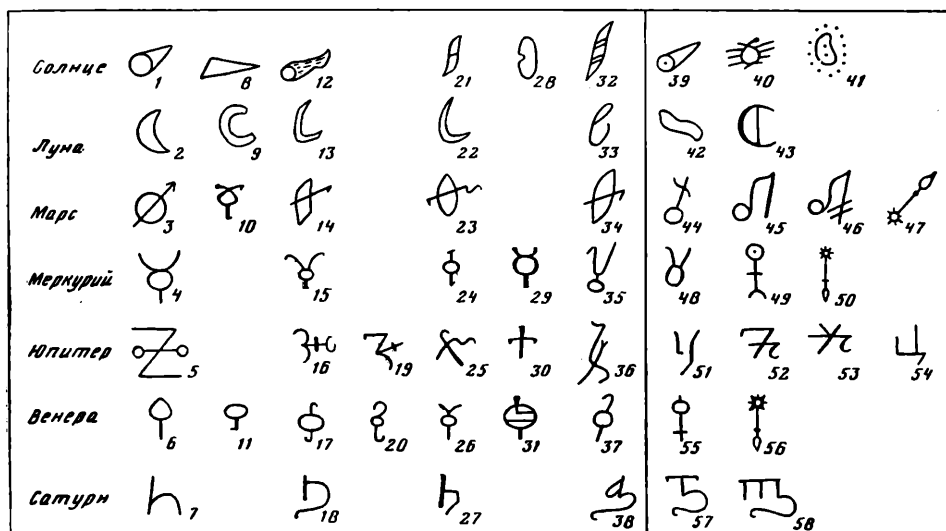 Солнце 1 8 12 21 28 32 39 40 41
Луна 2 9 13 22 33 42 43
Марс 3 10 14 23 34 44 45 46 47
Меркурий 4 15 24 29 35 48 49 50
Юпитер 5 16 19 25 30 36 51 52 53 54
Венера 6 11 17 20 26 31 37 55 56
Сатурн 7 18 27 38 57 58